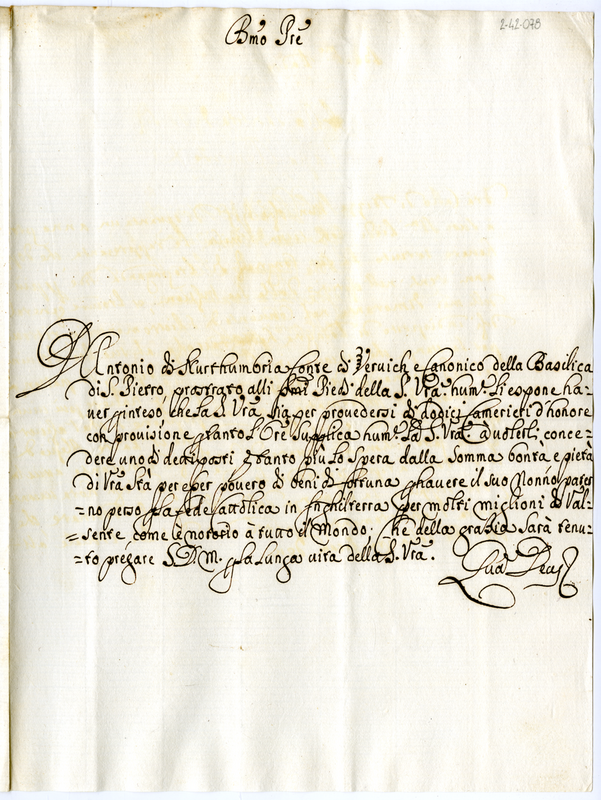 2-42-078
Bmo Pre
D Antonio di Nurthumbria Conte di Vervich e Canonico della Basilica
di S. Pietro, prostrato alli Smi Piedi della S. Vra. hum.te li espone ha-
uer inteso, che la S. Vra. sia per provedersi di dodici Camerieri d'honore
con provisione, p tanto l'Ore supplica hum.te la S. Vra. à volerli conce-
dere uno di detti posti e tanto più lo spera dalla somma bontà e pietà
di Vra Stà per esser povero di beni di fortuna p havere il suo Nonno pater
=no perso p la fede Cattolica in Inghilterra per molti miglioni di Val-
=sente, come è notorio à tutto il Mondo. Che della grazia sarà tenu-
=to pregare S. D. M. p la lunga vita della S. Vra.
Qua Deus